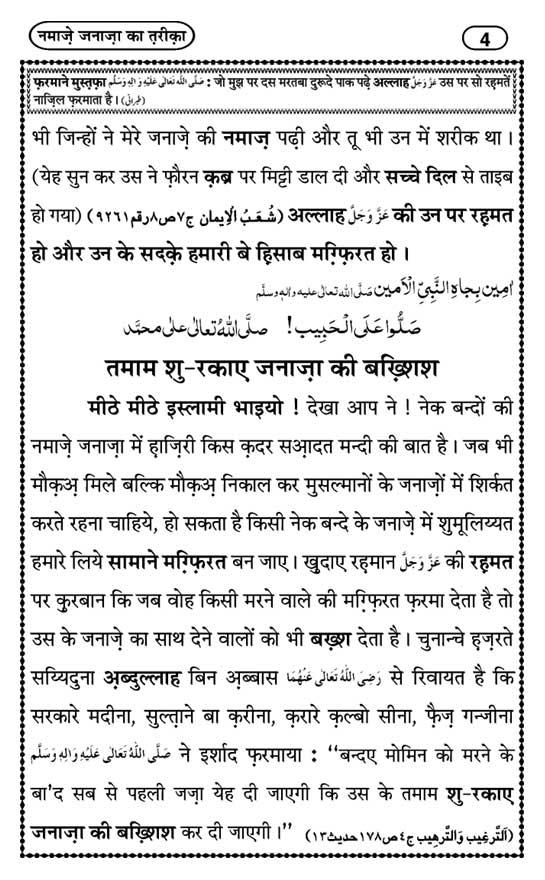 नमाज़े जनाज़ा का त़रीक़ा
4
फ़रमाने मुस्त़फ़ा صَلَّى اللهُ تَعَالٰى عَلَيْهِ وَاٰلِهٖ وَسَلَّم : जो मुझ पर दस मरतबा दुरूदे पाक पढ़े अल्लाह عَزَّ وَجَلَّ उस पर सो रह़मतें
नाज़िल फ़रमाता है । (طبرانی)
भी जिन्हों ने मेरे जनाज़े की नमाज़ पढ़ी और तू भी उन में शरीक था ।
(येह सुन कर उस ने फ़ौरन क़ब्र पर मिट्टी डाल दी और सच्चे दिल से ताइब
हो गया) (شُعَبُ الْاِيمان ج٧ص٨رقم٩٢٦١) अल्लाह عَزَّ وَجَلَّ की उन पर रह़मत
हो और उन के सदक़े हमारी बे ह़िसाब मग़्फ़िरत हो ।
اٰمِين بِجَاهِ النَّبِيِّ الْاَمين صلَّى الله تعالٰى عليه واٰلهٖ وسلَّم
صَلُّوا عَلَى الْحَبِيب ! صلَّى اللهُ تعالٰى علٰى محمَّد
तमाम शु-रकाए जनाज़ा की बख़्शिश
मीठे मीठे इस्लामी भाइयो ! देखा आप ने ! नेक बन्दों की
नमाज़े जनाज़ा में ह़ाज़िरी किस क़दर सआ़दत मन्दी की बात है । जब भी
मौक़अ़ मिले बल्कि मौक़अ़ निकाल कर मुसल्मानों के जनाज़ों में शिर्कत
करते रहना चाहिये, हो सकता है किसी नेक बन्दे के जनाज़े में शुमूलिय्यत
हमारे लिये सामाने मग़्फ़िरत बन जाए । ख़ुदाए रह़मान عَزَّ وَجَلَّ की रह़मत
पर क़ुरबान कि जब वोह किसी मरने वाले की मग़्फ़िरत फ़रमा देता है तो
उस के जनाज़े का साथ देने वालों को भी बख़्श देता है । चुनान्चे ह़ज़रते
सय्यिदुना अ़ब्दुल्लाह बिन अ़ब्बास رَضِيَ اللهُ تَعَالٰى عَنْهُمَا से रिवायत है कि
सरकारे मदीना, सुल्त़ाने बा क़रीना, क़रारे क़ल्बो सीना, फ़ैज़ गन्जीना
صَلَّى اللهُ تَعَالٰى عَلَيْهِ وَاٰلِهٖ وَسَلَّم ने इर्शाद फ़रमाया : “बन्दए मोमिन को मरने के
बा'द सब से पहली जज़ा येह दी जाएगी कि उस के तमाम शु-रकाए
जनाज़ा की बख़्शिश कर दी जाएगी ।” (اَلتَّرغِيب وَالتَّرهِيب ج٤ص١٧٨حديث١٣)